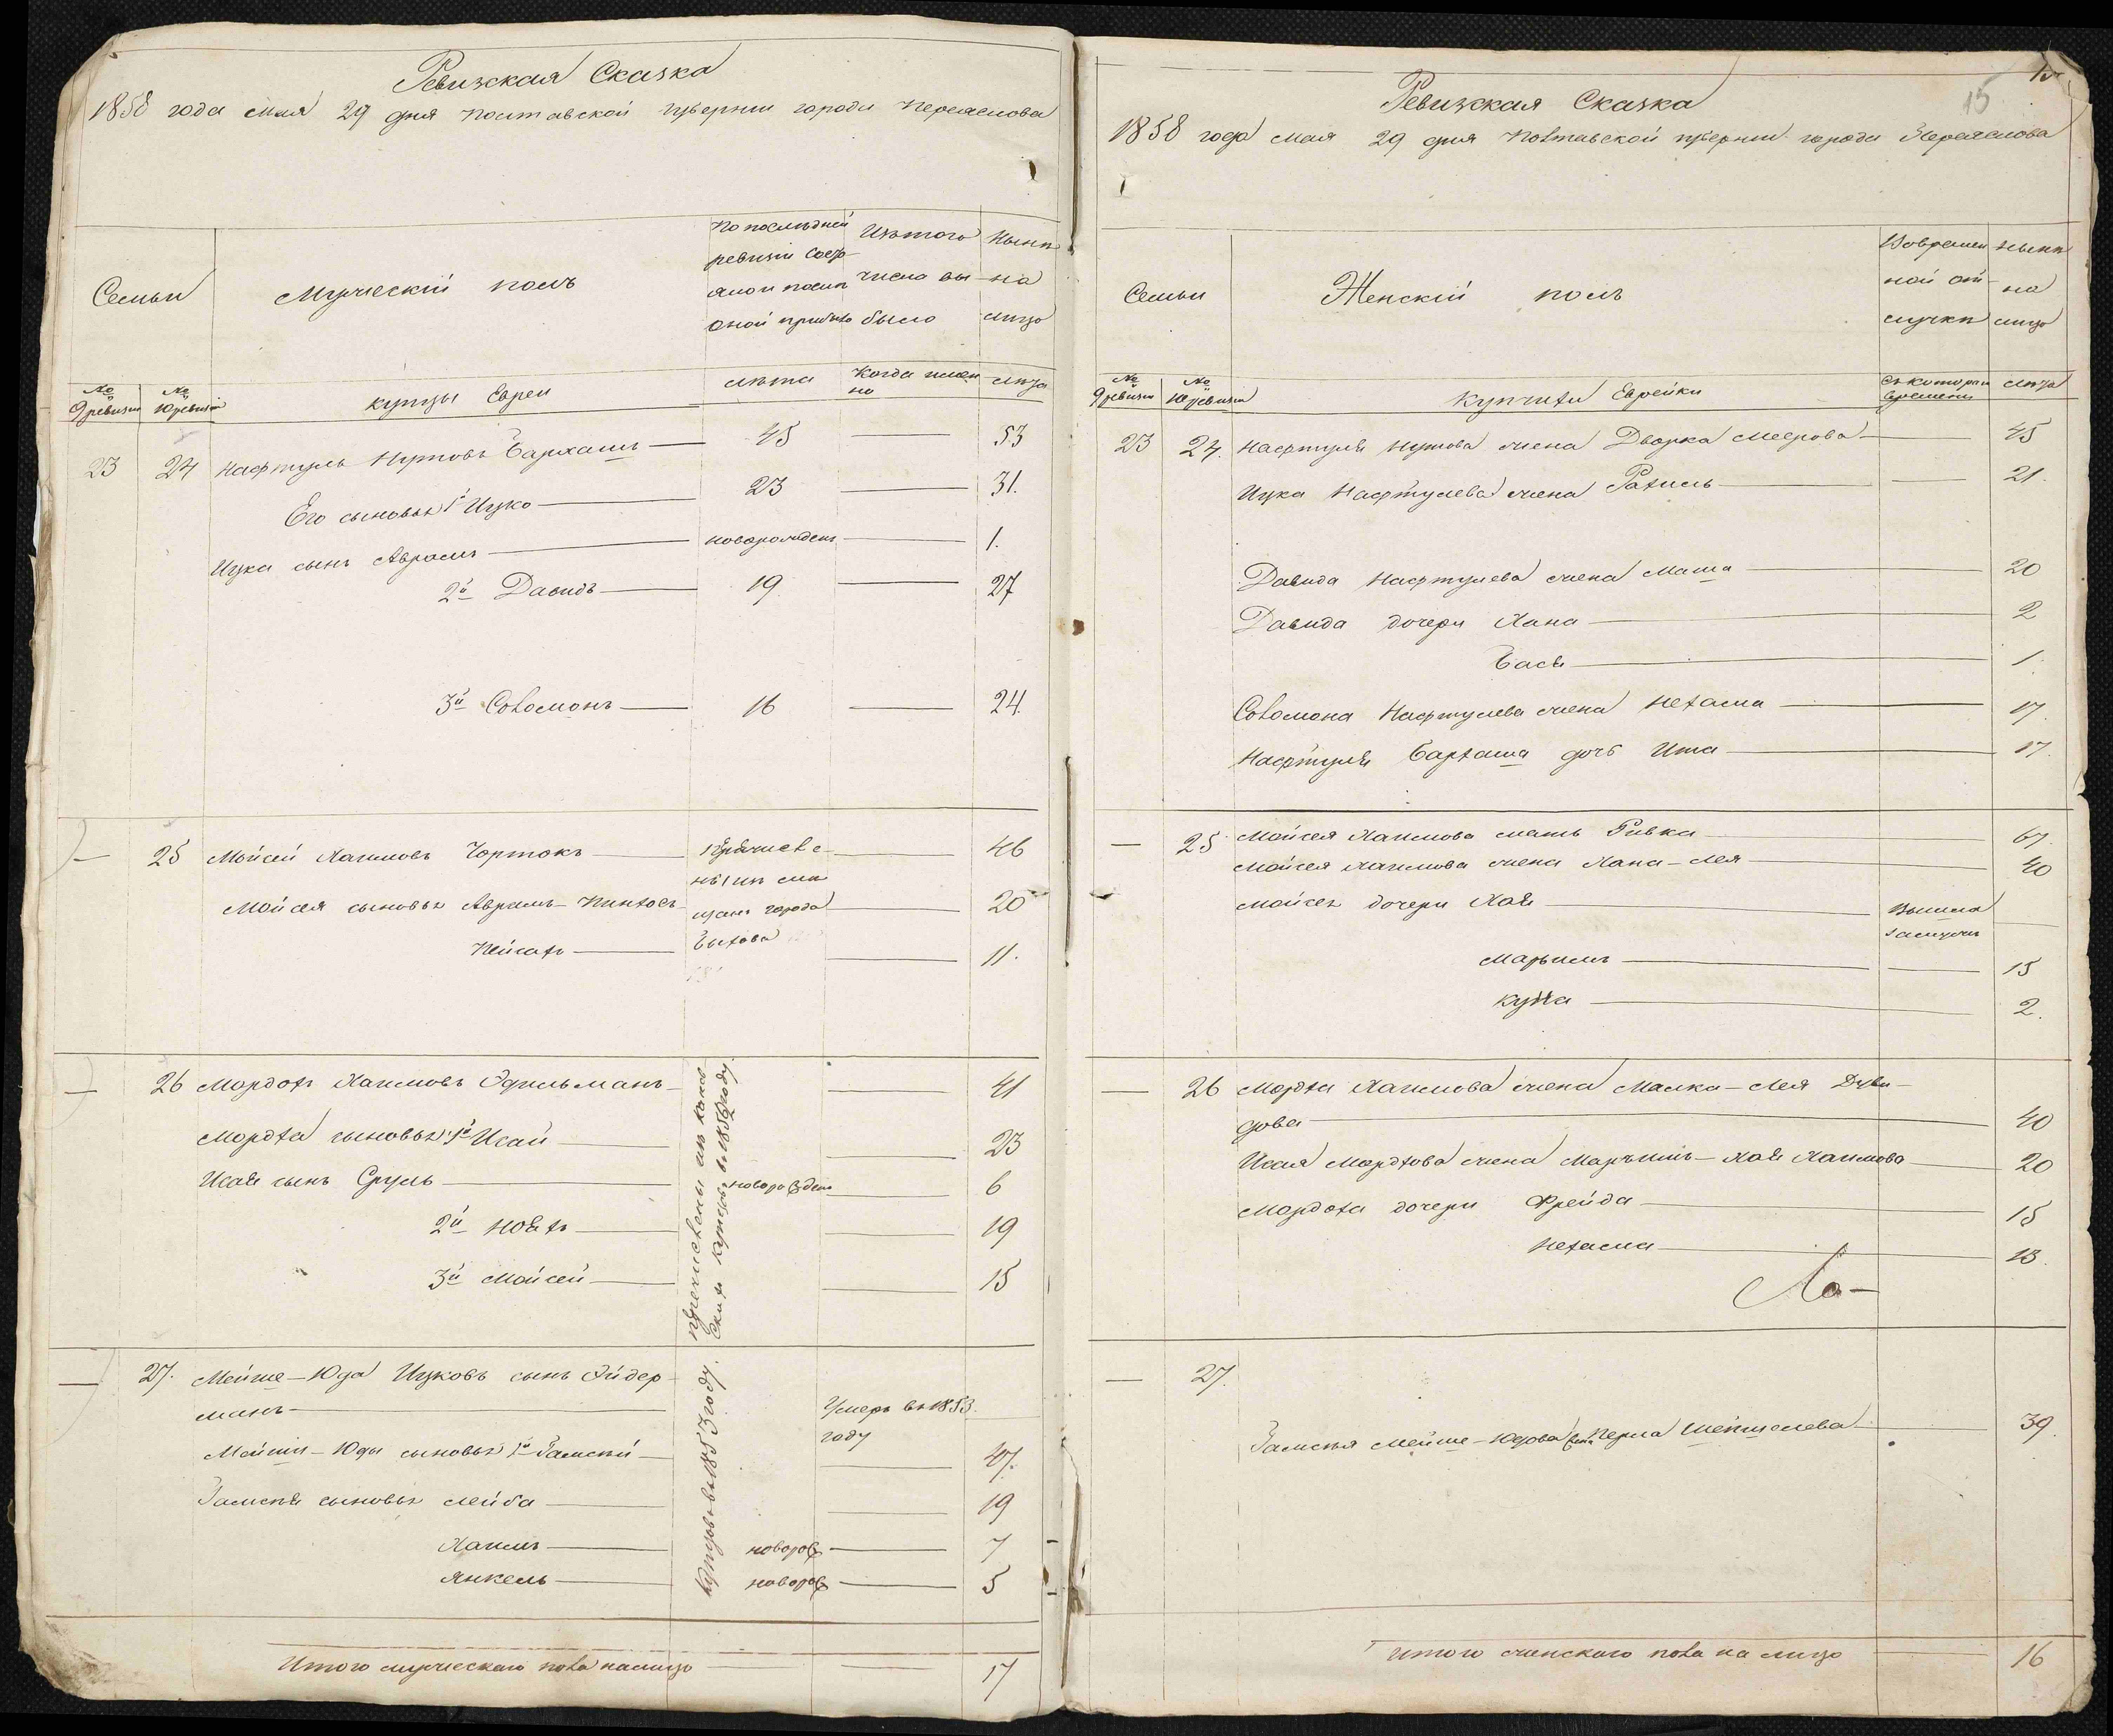 Ревизская Сказка
1858 года мая 29 дня Полтавской губернии города Переяслова
Семьи
Мужеский полъ
По последней ревизіи состояло и после оной прибыло
Изъ того числа выбыло
Ныне на лицо
№ 9 ревизіи
№ 10 ревизіи
купцы Евреи
лета
Когда именно
лета
23 24 Нафтуль Нутовъ Бархашъ — 45 — 53
Его сыновья 1й Ицко — 23 — 31.
Ицка сынъ Абрамъ — новорожден. — 1.
2й Давидъ — 19 — 27
3й Соломонъ — 16 — 24.
— 25 Мойсей Хаимовъ Чортокъ — 46
Мойсея сыновья Абрамъ-Пинхосъ — 20
Пейсахъ — 11.
Причислены изъ мещанъ города Быхова
— 26 Мордохъ Хаимовъ Эдильманъ — 41
Мордха сыновья 1й Исай — 23
Исая сынъ Сруль — новорожден — 6
2й Ноехъ — 19
3й Мойсей — 15
причислены изъ
купцовъ въ 1856 году.
— 27. Мейше-Юда Ицковъ сынъ Эйдер-
манъ — Умеръ въ 1853 году
Мейши-Юды сыновья 1й Замскій — 47.
Замскія сыновья Лейба — 19
Хаимъ — новорож — 7
Янкель — новорож — 5
купцовъ въ 1853 году.
Итого мужескаго пола налицо — 17
15
15
Ревизская Сказка
1858 года мая 29 дня Полтавской губернии города Переяслова
Семьи
Женскій полъ
Во временной отлучке
ныне на лицо
№ 9 ревизіи
№ 10 ревизіи
купчихи Еврейки
Съ котораго времени
лета
23 24. Нафтуля Нутова жена Дворка Меерова — 45
Ицка Нафтулева жена Рахиль — 21.
Давида Нафтулева жена Маша — 20
Давида дочери Хана — 2
Бася — 1.
Соломона Нафтулева жена Нехама — 17.
Нафтуля Бархаша дочь Ита — 17.
— 25 Мойсея Хаимова мать Ривка — 67.
Мойсея Хаимова жена Хана-Лея — 40
Мойсея дочери Хая — Вышла замужъ
Марьимъ — 15
Куна — 2.
— 26 Мордха Хаимова жена Малка-Лея Дави-
дова — 40
Исая Мордхова жена Марьимъ-Хая Хаимова — 20
Мордоха дочери Фрейда — 15
Нехама — 13.
Ло-
— 27.
Замскія Мейше-Юдова жена Перла — 39.
Итого женскаго пола на лицо — 16